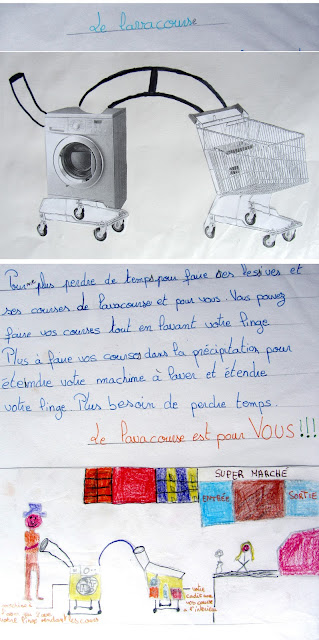 Le lavacourse
Pour ne plus perdre de temps pour faire des lessives et
ses courses le lavacourse et pour vous. Vous pouvez
faire vos courses tout en lavant votre linge
Plus à faire vos courses dans la précipitation pour
éteindre votre machine à laver et étendre
votre linge. Plus besoin de perdre temps.
Le lavacourse est pour VOUS!!!
SUPER MARCHÉ
ENTRÉE SORTIE
votre
votre linge